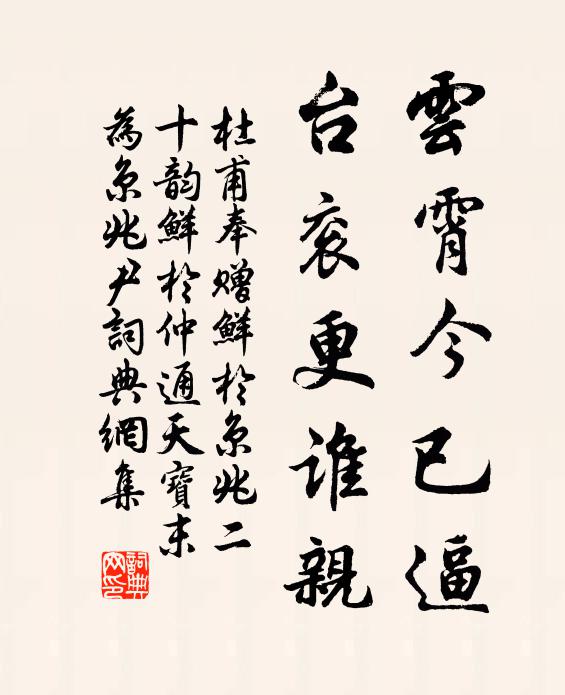 雲霄今已逼
台衮更誰親
杜甫奉贈鮮於京兆二
十韵鮮於仲通天寶末
為京兆尹詞典網集
詞典
网印